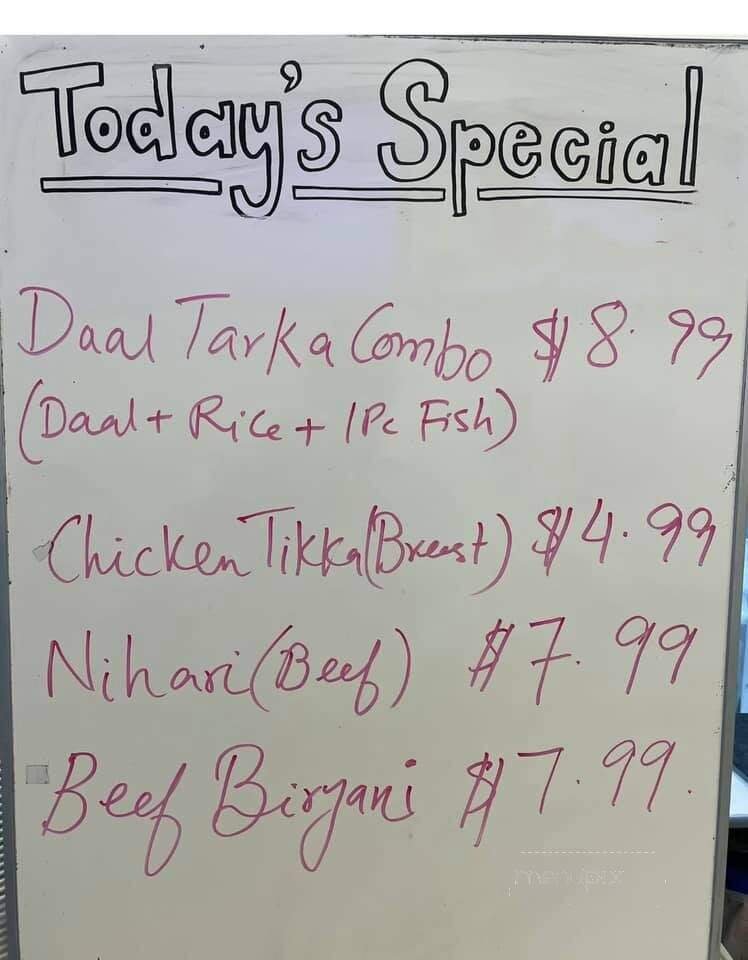 Today's Special
Daal Tarka Combo $8.99
(Daal + Rice + 1Pc Fish)
Chicken Tikka(Breast) $4.99
Nihari (Beef) $7.99
Beef Biryani $7.99.
menupix